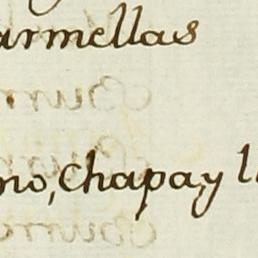 armellas
no, chapa, y l